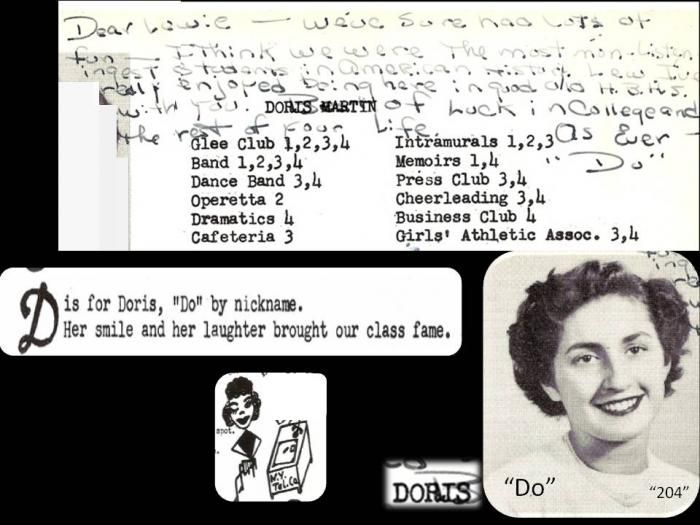 Dear Lewie — We've sure had lots of
fun — I think we were the most non-listen
ingest students in American History. Lew I've
really enjoyed being here in good old H.B.H.S.
with you. Best of Luck in College and
DORIS MARTIN
the rest of your Life.
As Ever
"Do"
Glee Club 1,2,3,4
Band 1,2,3,4
Dance Band 3,4
Operetta 2
Dramatics 4
Cafeteria 3
Intramurals 1,2,3
Memoirs 1,4
Press Club 3,4
Cheerleading 3,4
Business Club 4
Girls' Athletic Assoc. 3,4
D is for Doris, "Do" by nickname.
Her smile and her laughter brought our class fame.
spot.
N.Y.
Tel.Co
DORIS
“Do”
“204”